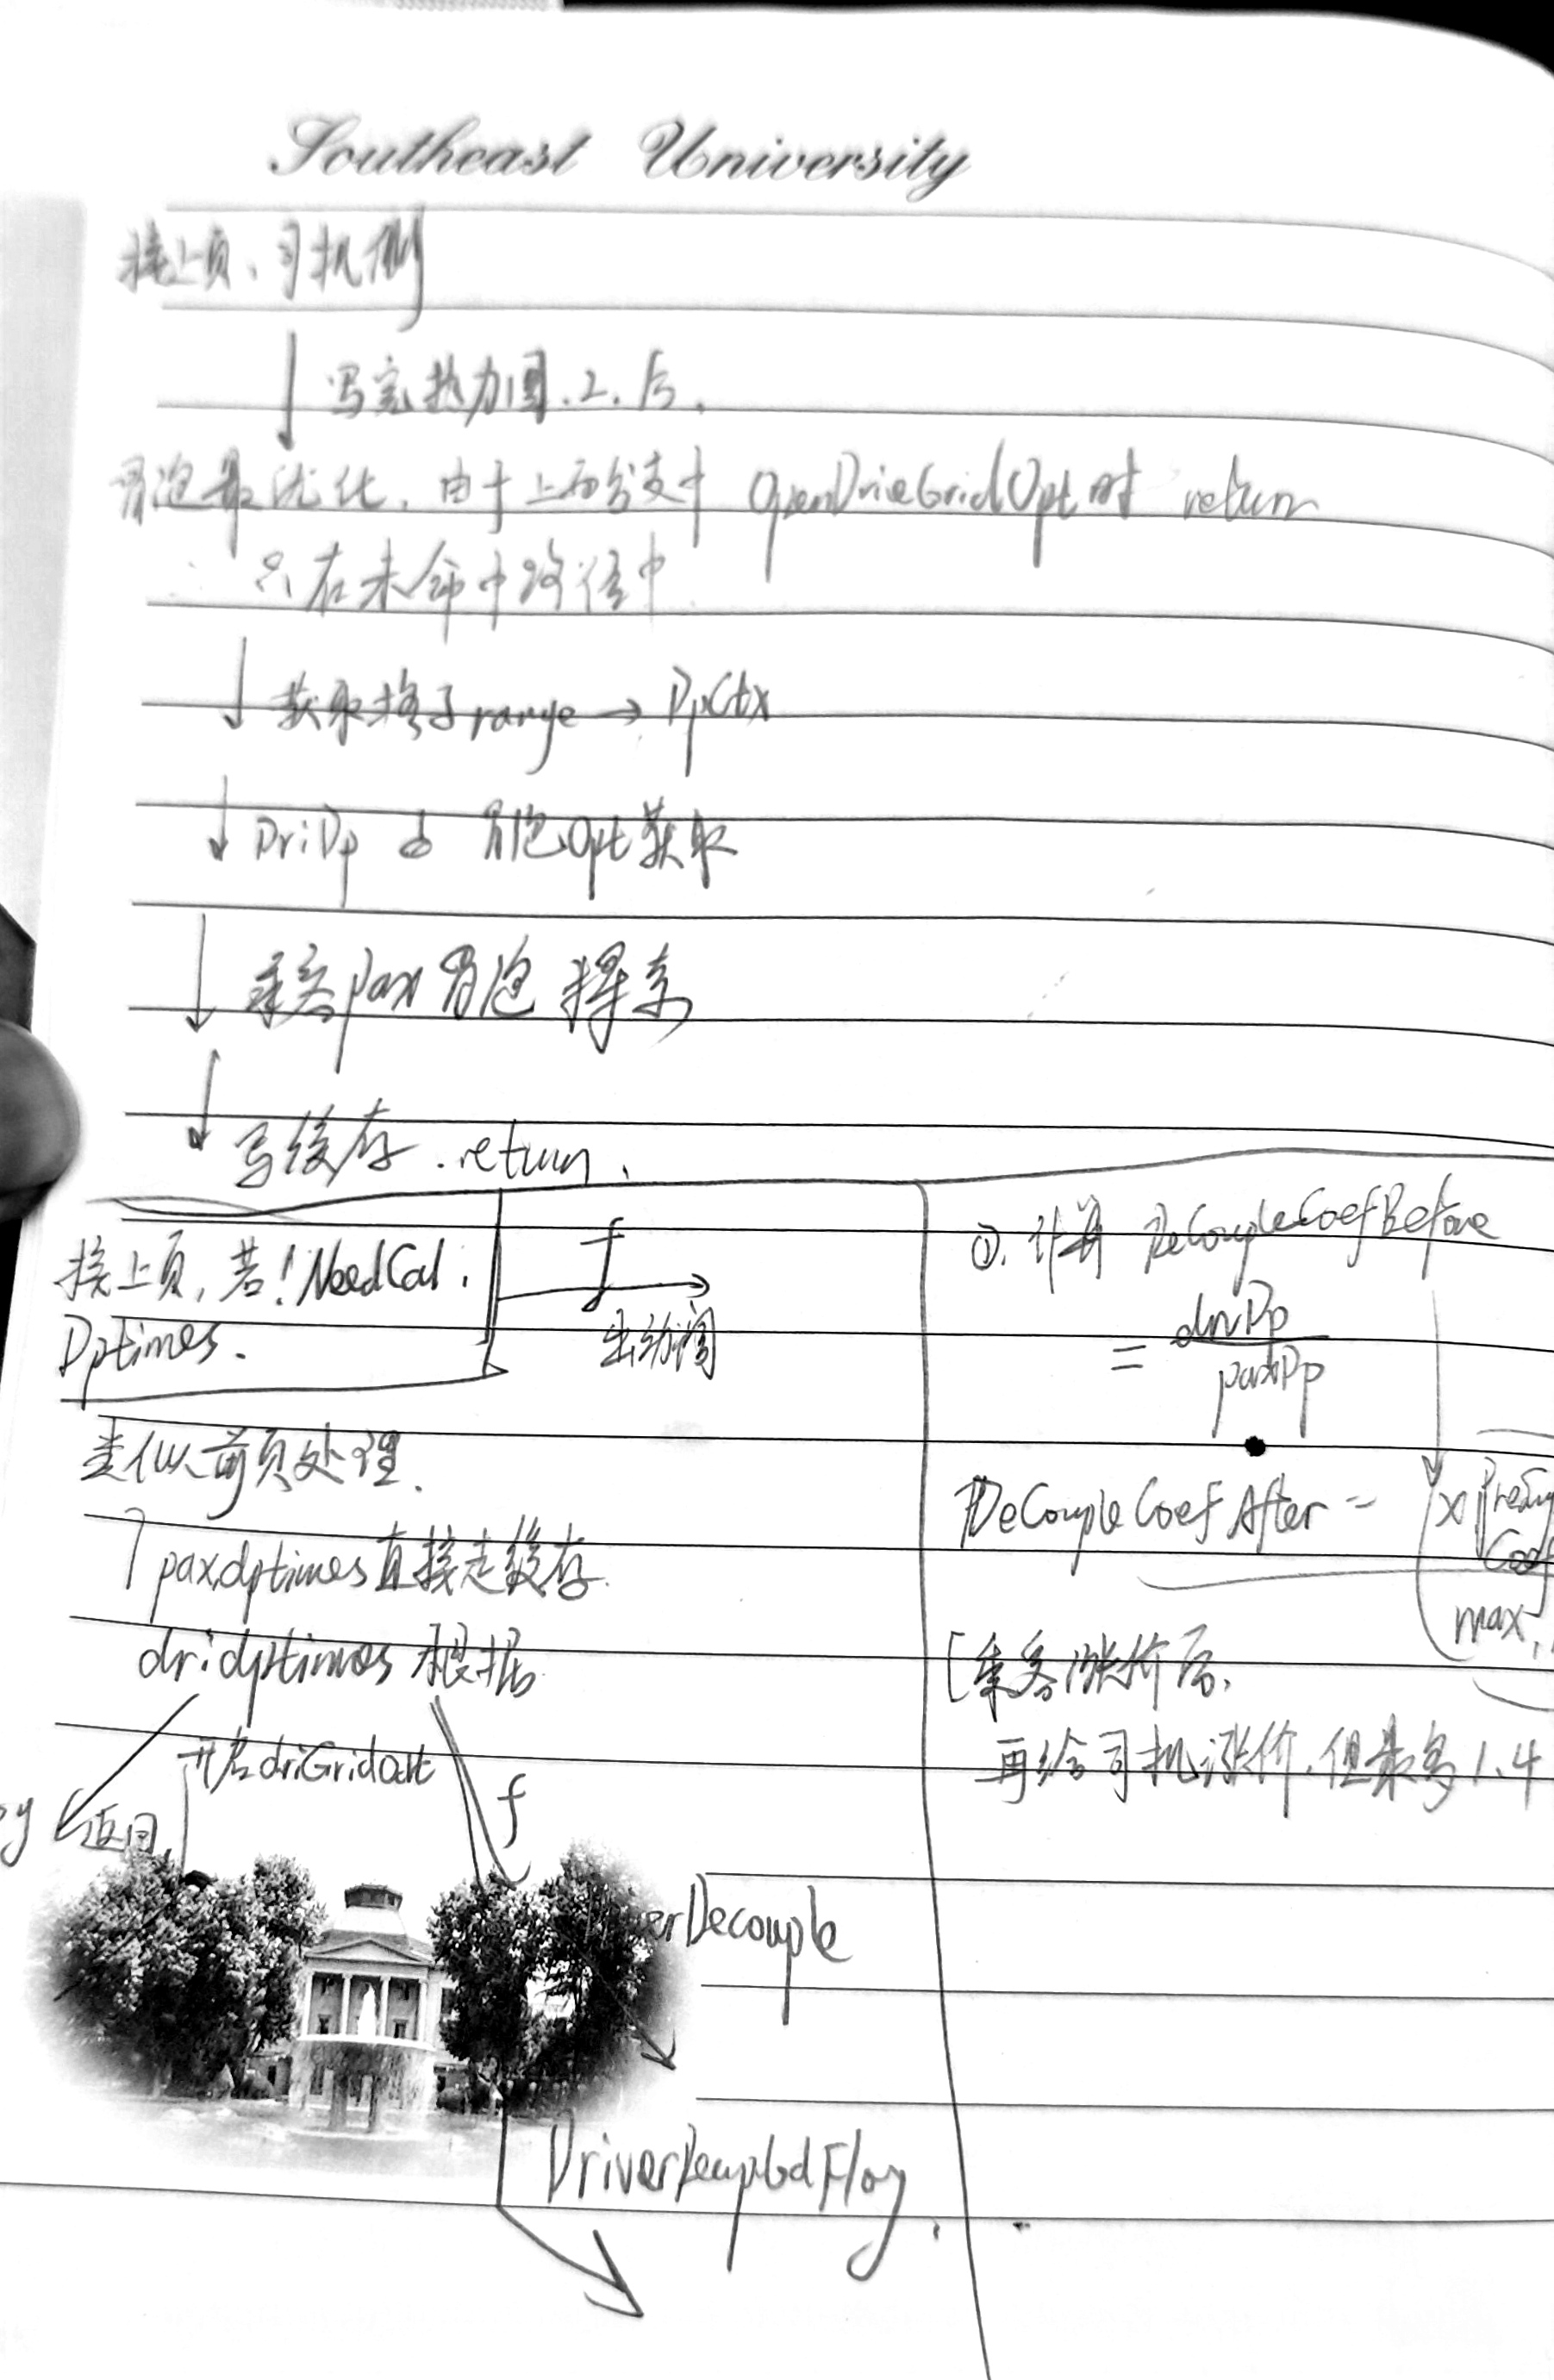 Southeast University
接上页、司机侧
写完热力图.2.后.
冒泡最优化, 由于上面分支中 OpenDriveGridOpt时 return
只在未命中路径中
获取格子range → DpCtx
DriDp 由 冒泡Opt获取
乘客pax冒泡 探索
写缓存.return.
接上页, 若!NeedCal.
Dptimes.
f
出动调
类似前页处理.
paxdptimes直接走缓存.
dridptimes 根据
开启driGridOpt
f
返回.
erDecouple
DriverDecoupledFlag.
①. 计算 DeCoupleCoefBefore
= driDp
paxDp
DeCoupleCoefAfter =
x
Coef
max,
[乘客涨价后,
再给司机涨价.但最多1.4